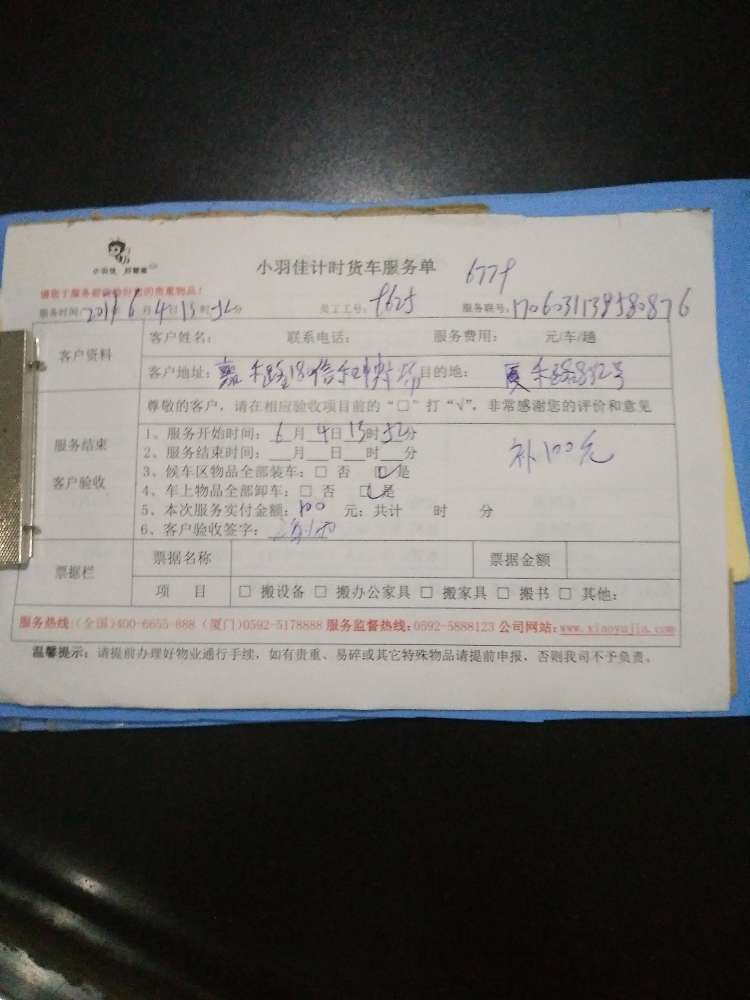 小羽佳 好管家
小羽佳计时货车服务单 6779
请您于服务前收检好您的贵重物品!
服务时间: 年6月4日13时52分 员工工号: 服务联号:
客户资料
客户姓名: 联系电话: 服务费用: 元/车/趟
客户地址: 目的地:
服务结束
客户验收
尊敬的客户,请在相应验收项目前的“□”打“√”,非常感谢您的评价和意见
1、服务开始时间:6月4日13时52分
2、服务结束时间:__月__日__时__分
补100元
3、候车区物品全部装车:□ 否 ☑是
4、车上物品全部卸车:□ 否 ☑是
5、本次服务实付金额:100 元;共计 时 分
6、客户验收签字:
票据栏
票据名称 票据金额
项 目 □ 搬设备 □ 搬办公家具 □ 搬家具 □ 搬书 □ 其他:
服务热线:(全国)400-6655-888 (厦门)0592-5178888 服务监督热线:0592-5888123 公司网站:www.xiaoyujia.com
温馨提示:请提前办理好物业通行手续,如有贵重、易碎或其它特殊物品请提前申报,否则我司不予负责。